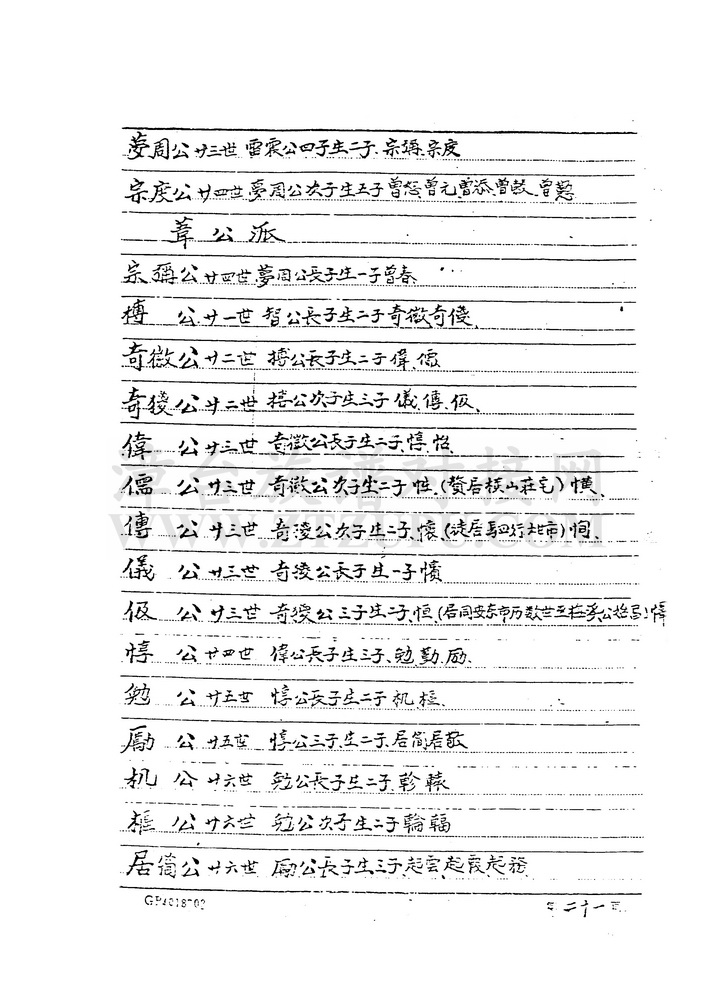 夢周公廿三世 雷震公四子生二子.宗禰.宗度
宗度公廿四世夢周公次子生五子曾慫曾元,曾添,曾鼓.曾慇
葦公派
宗禰公廿四世.夢周公長子生一子曾春
榑 公廿一世 智公長子生二子奇徵奇傻.
奇徵公廿二世 榑公長子生二子偉.儒
公廿二世 公次子生三子儀.傅.伋.
偉 公廿三世 奇徵公長子生二子.惇.怡
儒 公廿三世 奇徵公次子生二子.性.(贅居横山莊宅)懭.
傅 公廿三世 公次子生二子.懷.(徙居馬四行北市)恂.
儀 公廿三世 公長子生一子懭
伋 公廿三世 公三子生二子.恒.(居同安东市历数世至
惇 公廿四世 偉公長子生三子.勉.勤.励.
勉 公廿五世 惇公長子生二子机.框.
励 公廿五世 惇公三子.生二子.居简居敬
机 公廿六世 勉公長子生二子軫轅
框 公廿六世 勉公次子生二子輪輻
居简公廿六世 励公長子生三子起雲.起霞.起務
GP4018702
第二十一頁